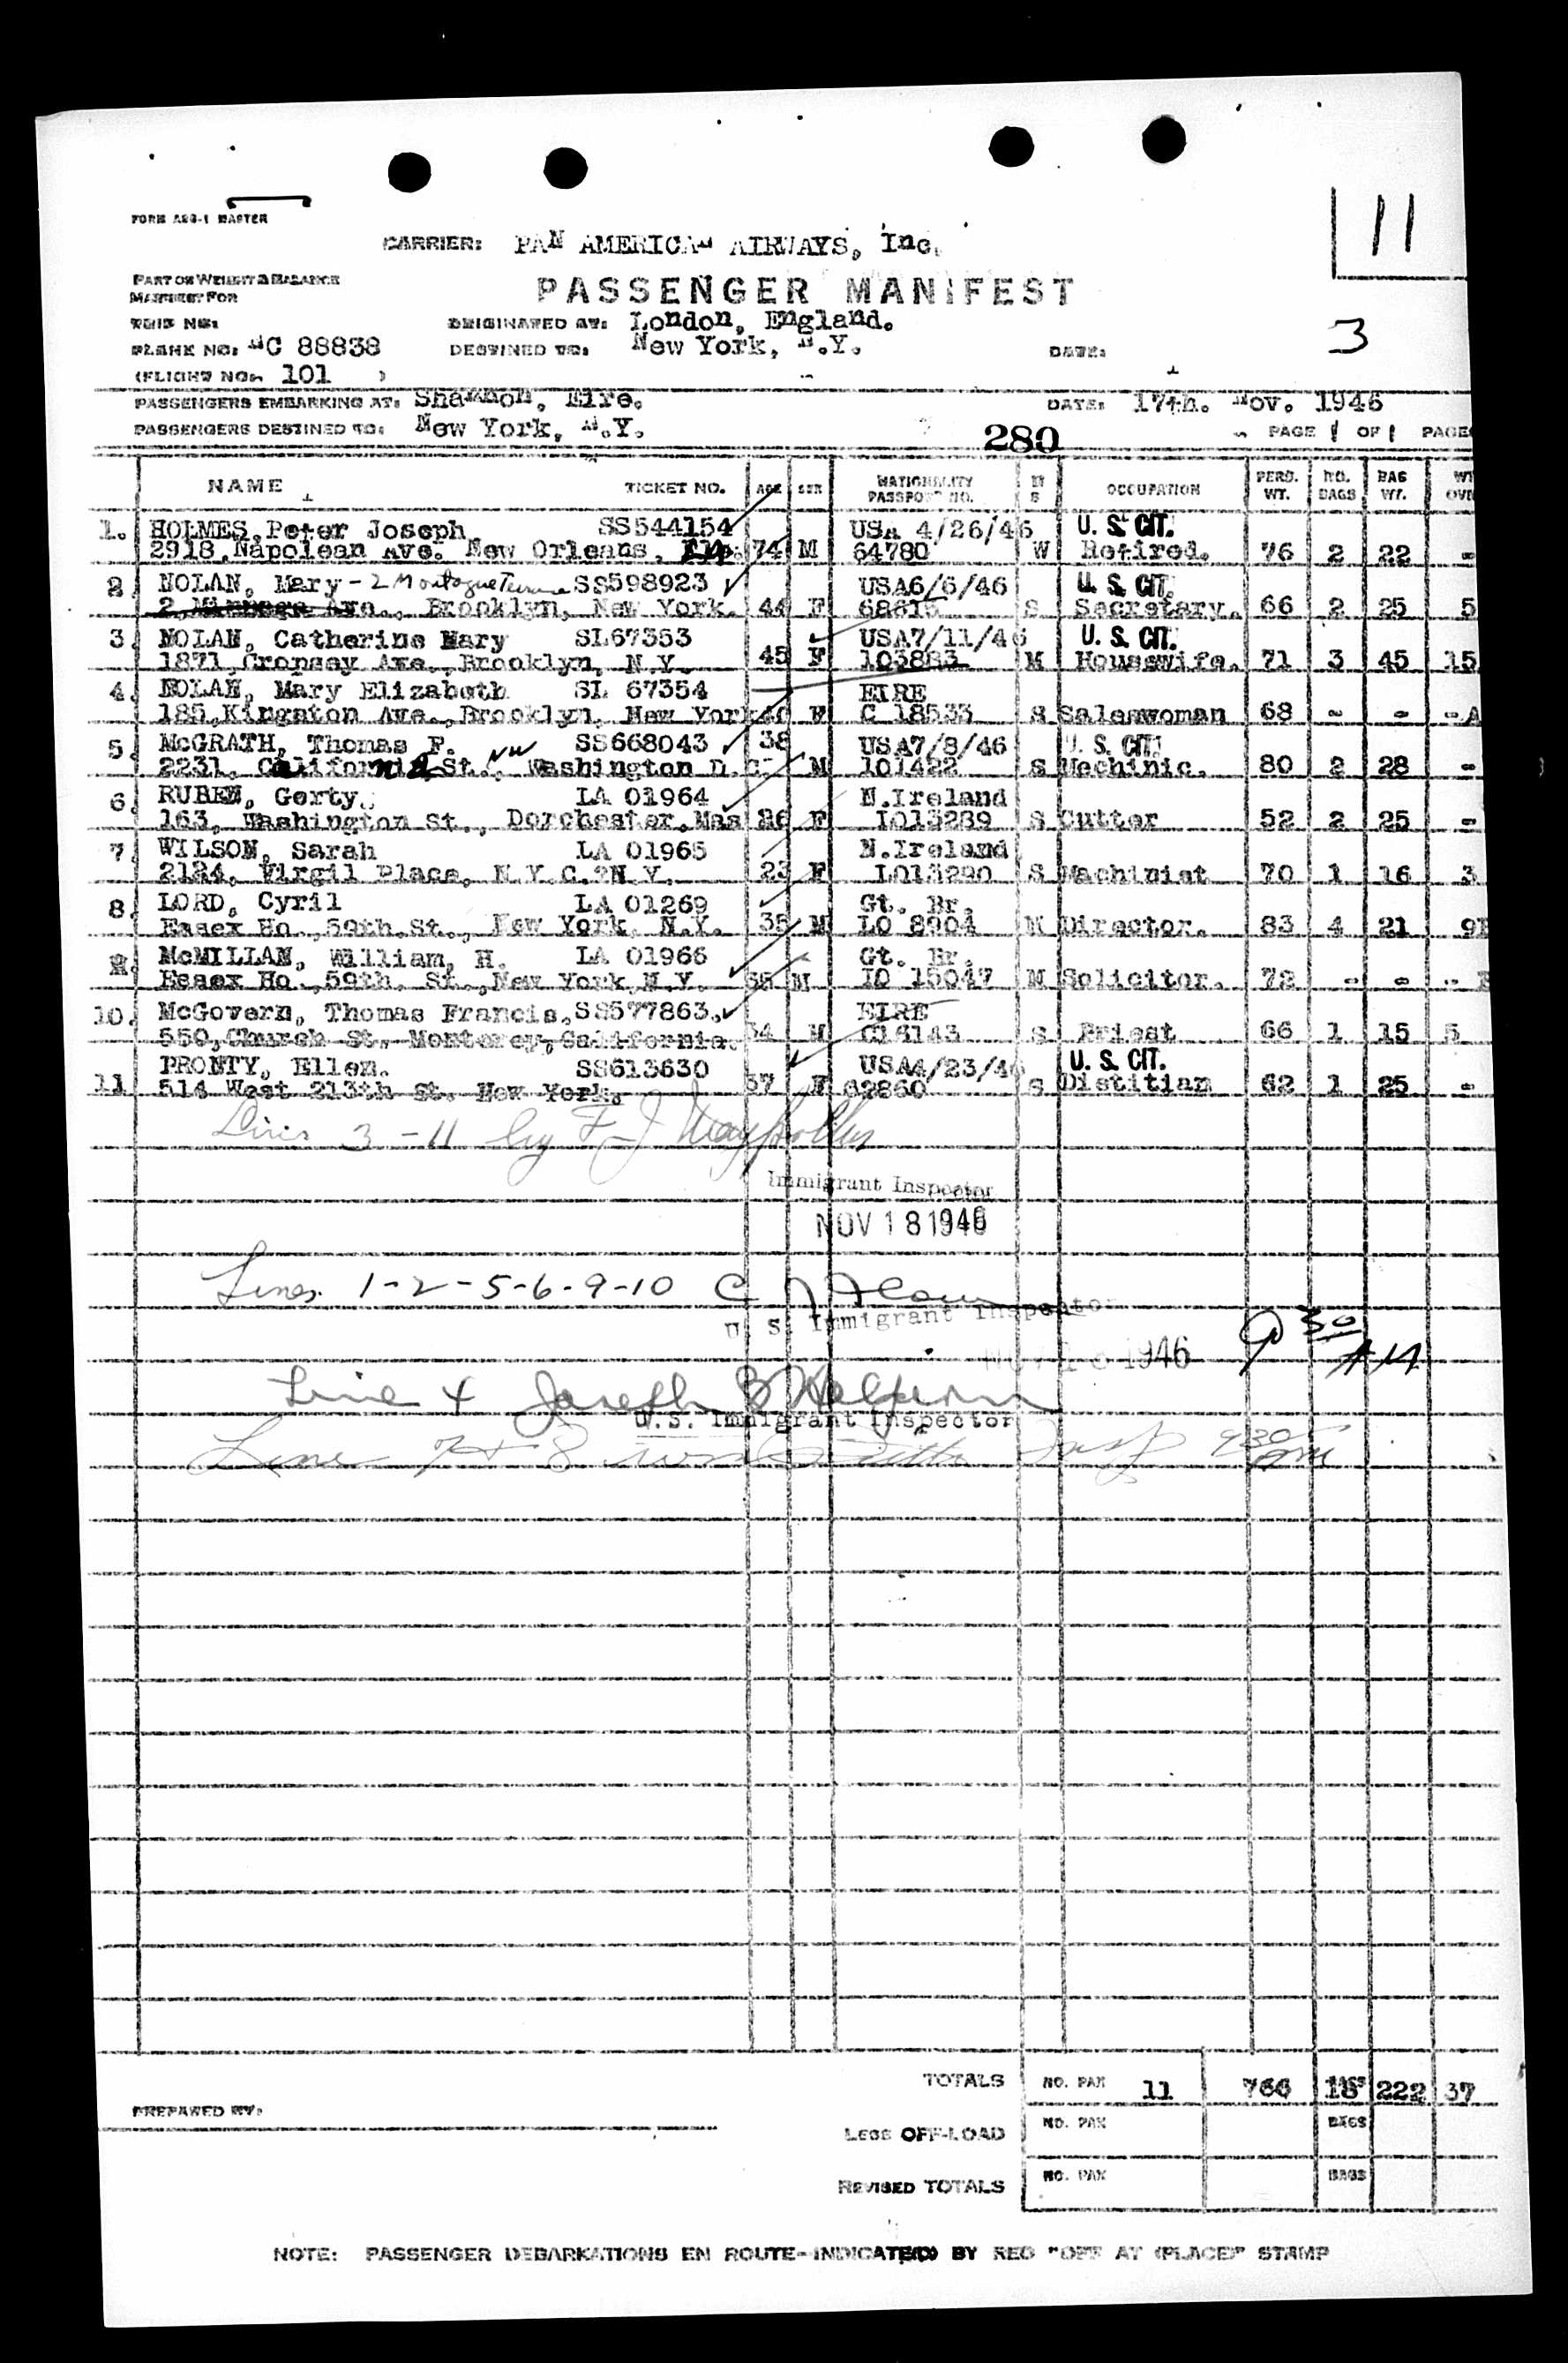 11
FORM ASS-1 MASTER
CARRIER: PAN AMERICAN AIRWAYS, Inc.
PART OF WEIGHT & BALANCE
MANIFEST FOR
PASSENGER MANIFEST
TRIP NO:
ORIGINATED AT: London, England.
3
PLANE NO: NC 88838
DESTINED TO: New York, N.Y.
DATE:
(FLIGHT NO. 101 )
PASSENGERS EMBARKING AT: Shannon, Eire.
DATE: 17th. Nov. 1946
PASSENGERS DESTINED TO: New York, N.Y.
280
PAGE 1 OF 1 PAGES
NAME TICKET NO. AGE SEX NATIONALITY PASSPORT NO. M S OCCUPATION PERS. WT. NO. BAGS BAG WT.
1. HOLMES, Peter Joseph SS544154 USA 4/26/46 U. S. CIT.
2918, Napolean Ave. New Orleans, 74 M 64780 W Retired. 76 2 22 -
2 NOLAN, Mary - 2 Montague Terrace SS598923 USA6/6/46 U. S. CIT.
2, Ave., Brooklyn, New York. 44 F S Secretary. 66 2 25 5
3. NOLAN, Catherine Mary SL67353 USA7/11/46 U. S. CIT.
1871, Cropsey Ave., Brooklyn, N.Y. 45 F 103883 M Housewife. 71 3 45 15
4. NOLAN, Mary Elizabeth SL 67354 EIRE
185, Kingston Ave., Brooklyn, New York F C 18533 S Saleswoman 68 - - - A
5. McGRATH, Thomas F. SS668043 38 USA7/8/46 U. S. CIT.
2231, California St., NW Washington D.C. M 101422 S Mechinic. 80 2 28 -
6. RUBEN, Gerty. LA 01964 N.Ireland
163, Washington St., Dorchester, Mas F LO13289 S Cutter 52 2 25 -
7. WILSON, Sarah LA 01965 N.Ireland
2124, Virgil Place, N.Y.C. N.Y. 23 F LO13290 S Machinist 70 1 16 3
8. LORD, Cyril LA 01269 Gt. Br.
Essex Ho., 59th. St., New York, N.Y. 35 M LO 8904 M Director. 83 4 21 9
9. McMILLAN, William, H. LA 01966 Gt. Br.
Essex Ho., 59th. St., New York, N.Y. M LO 15047 M Solicitor. 72 - - -
10. McGovern, Thomas Francis, SS577863, EIRE
550, Church St. Monterey, California. 34 M C16143 S Priest 66 1 15 5
PRONTY, Ellen. SS613630 USA4/23/46 U. S. CIT.
11 514 West 213th St. New York. 37 F 62860 S Distitian 62 1 25 -
3 - 11 by F. J.
Immigrant Inspector
NOV 18 1946
Lines 1-2-5-6-9-10
U. S. Immigrant Inspector
1946 9 30 AM
Line 4 Joseph B Halpern
U.S. Immigrant Inspector
Lines 7 + 8 Insp 930 AM
TOTALS NO. PAX 11 766 BAGS 18 222 37
PREPARED BY:
LESS OFF-LOAD NO. PAX BAGS
REVISED TOTALS NO. PAX BAGS
NOTE: PASSENGER DEBARKATIONS EN ROUTE-INDICATED BY RED "OFF AT (PLACE)" STAMP